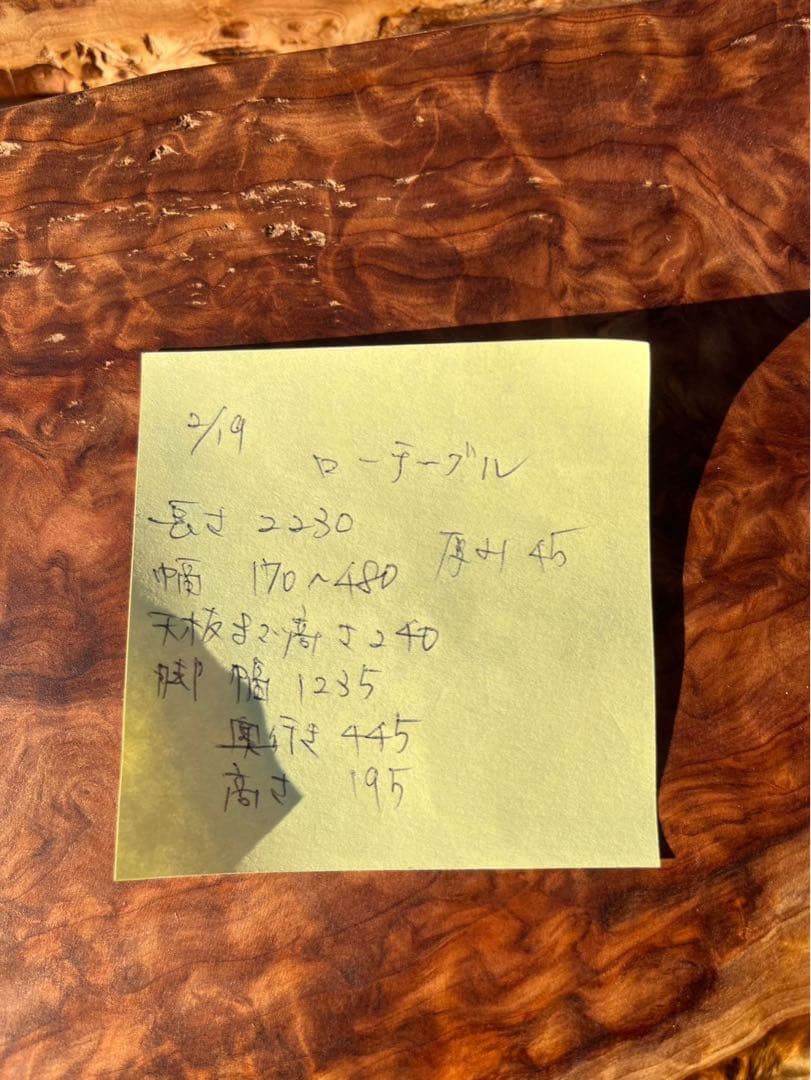 2/19
ローテーブル
長さ 2230
厚み 45
幅 170~480
天板まで高さ240
脚 幅 1235
奥行き 445
高さ 195